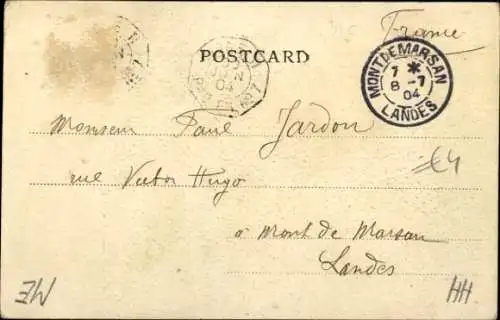 France
POSTCARD
MONT DE MARSAN
7 *
8 -7
04
LANDES
Monsieur Paul Jardon
rue Victor Hugo
à Mont de Marsan
Landes
HH